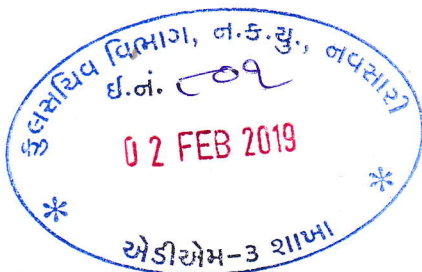 કુલસચિવ વિભાગ, ન.કૃ.યુ., નવસારી
ઈ.નં. ૮૦૧
02 FEB 2019
* *
એડીએમ-૩ શાખા